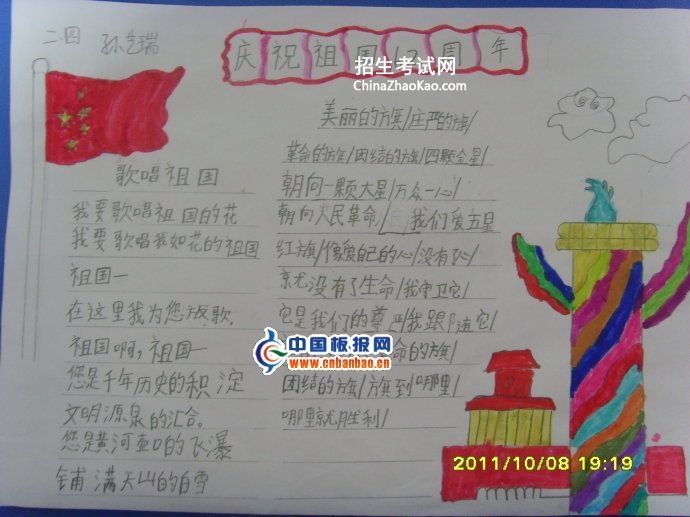 二.四 孙艺瑞
庆祝祖国62周年
招生考试网
ChinaZhaoKao.com
歌唱祖国
我要歌唱祖国的花
我要歌唱我如花的祖国
祖国一
在这里我为您放歌.
祖国啊,祖国一
您是千年历史的积淀
文明源泉的汇合.
您是黄河壶口的飞瀑
铺满天山的白雪
美丽的旗/庄严的旗/
革命的旗/团结的旗/四颗金星/
朝向一颗大星/万众一心/
朝向人民革命/ 我们爱五星
红旗/像爱自己的心/没有了心/
京尤没有了生命/我守卫它/
它是我们的尊严/我跟随它/
命的旗/
团结的旗/旗到哪里/
哪里就胜利/
中国板报网
www.cnbanbao.cn
2011/10/08 19:19